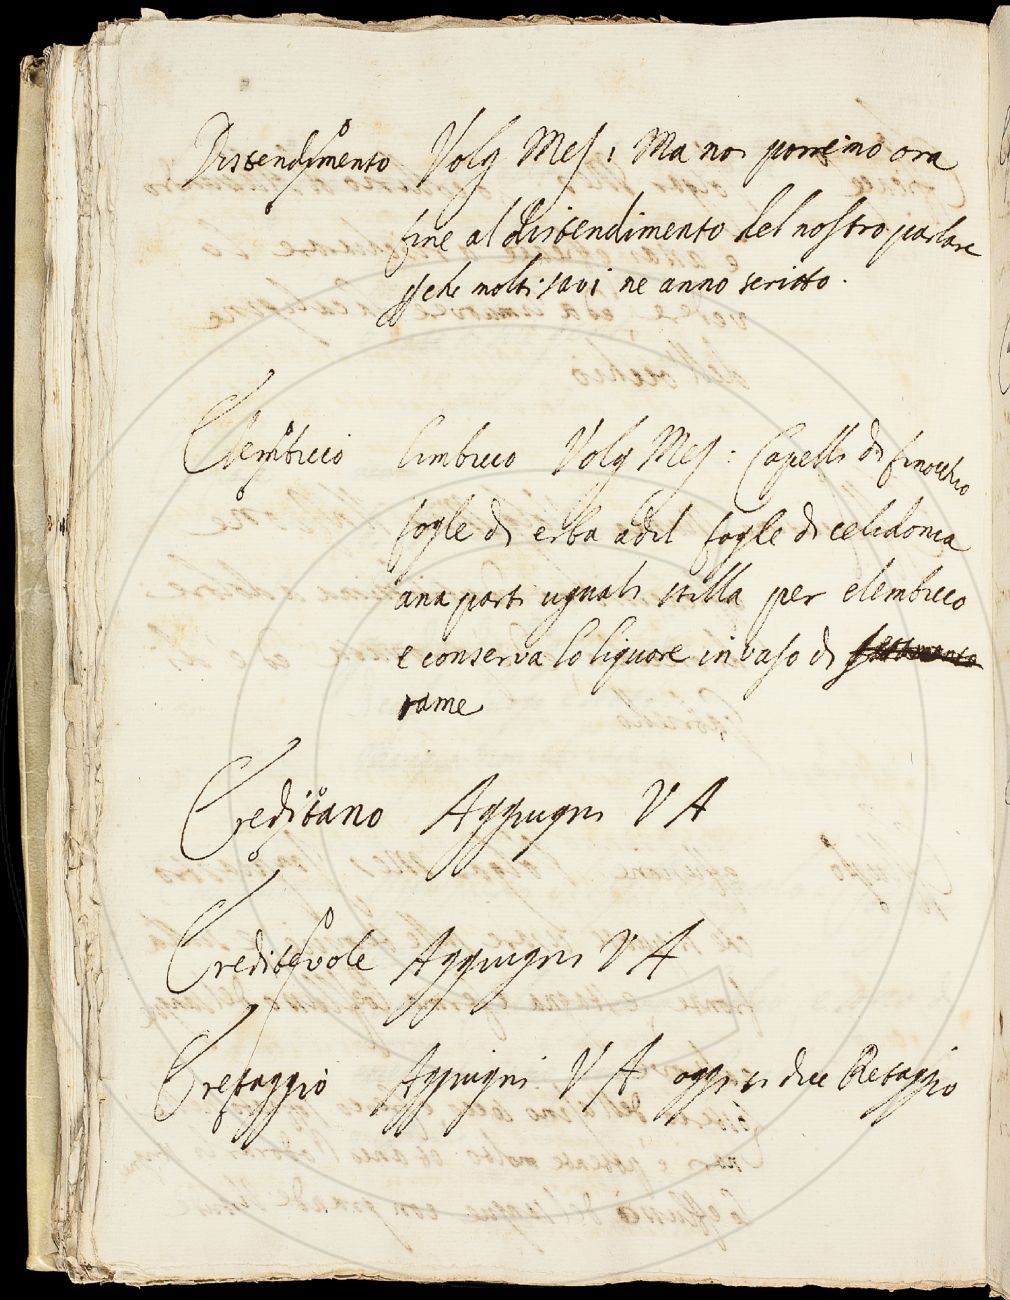 Distendimento Volg Mes: Ma noi porremo ora
fine al distendimento del nostro parlare
pche molti savi ne anno scritto.
Elembicco limbicco Volg Mes: Capelli di finocchio
fogle di erba adil fogle di celidonia
ana parti uguali stilla per elembicco
e conserva lo liquore in vaso di
rame
Ereditano Aggiugni V A
Ereditevole Aggiugni V A
Eretaggio Aggiugni V A oggi si dice Retaggio